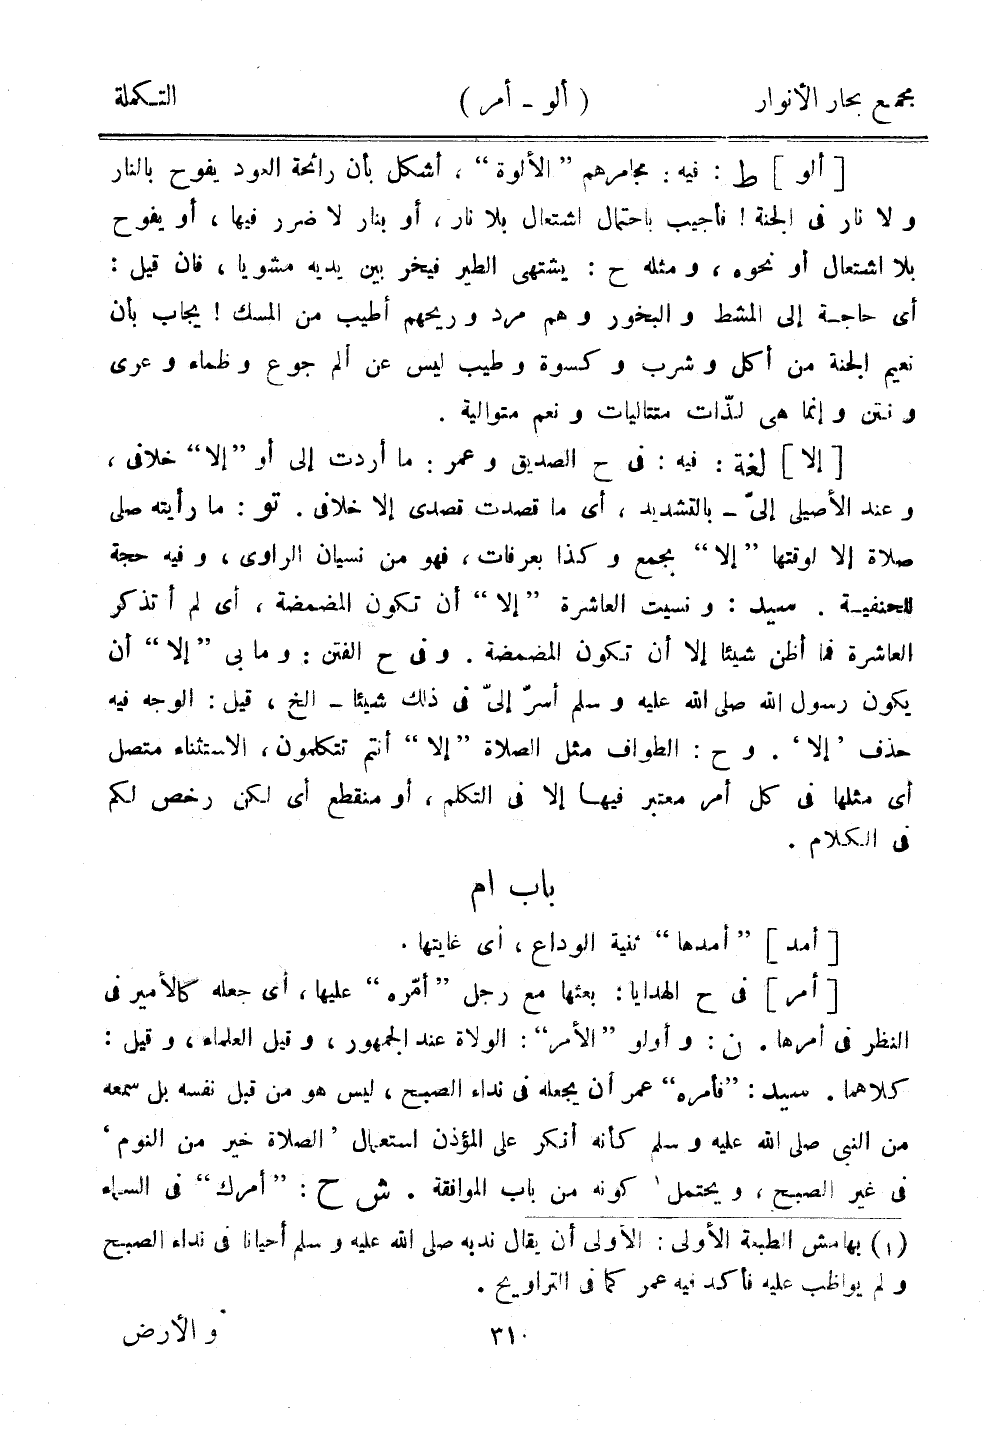 مجمع بحار الأنوار ( ألو - أمر ) التكملة
[ ألو ] ط : فيه : مجامرهم "الألوة" ، أشكل بأن رائحة العود يفوح بالنار
و لا نار فى الجنة ! فأجيب باحتمال اشتعال بلا نار ، أو بنار لا ضرر فيها ، أو يفوح
بلا اشتعال أو نحوه ، و مثله ح : يشتهى الطير فيخر بين يديه مشويا ، فان قيل :
أى حاجة إلى المشط و البخور و هم مرد و ريحهم أطيب من المسك ! يجاب بأن
نعيم الجنة من أكل و شرب و كسوة و طيب ليس عن ألم جوع و ظماء و عرى
و نتن و إنما هى لذّات متتاليات و نعم متوالية .
[ إلا ] لغة : فيه : فى ح الصديق و عمر : ما أردت إلى أو "إلا" خلافى ،
و عند الأصيلى إلىّ - بالتشديد ، أى ما قصدت قصدى إلا خلافى . تو : ما رأيته صلى
صلاة إلا لوقتها "إلا" بجمع و كذا بعرفات ، فهو من نسيان الراوى ، و فيه حجة
للحنفية . سيد : و نسيت العاشرة "إلا" أن تكون المضمضة ، أى لم أتذكر
العاشرة فما أظن شيئا إلا أن تكون المضمضة . و فى ح الفتن : و ما بى "إلا" أن
يكون رسول الله صلى الله عليه و سلم أسرّ إلىّ فى ذلك شيئا - الخ ، قيل : الوجه فيه
حذف 'إلا' . و ح : الطواف مثل الصلاة "إلا" أنتم تتكلمون ، الاستثناء متصل
أى مثلها فى كل أمر معتبر فيها إلا فى التكلم ، أو منقطع أى لكن رخص لكم
فى الكلام .
باب ام
[ أمد ] "أمدها" ثنية الوداع ، أى غايتها .
[ أمر ] فى ح الهدايا : بعثها مع رجل "أمّره" عليها ، أى جعله كالأمير فى
النظر فى أمرها . ن : و أولو "الأمر" : الولاة عند الجمهور ، و قيل العلماء ، و قيل :
كلاهما . سيد : "فأمره" عمر أن يجعله فى نداء الصبح ، ليس هو من قبل نفسه بل سمعه
من النبي صلى الله عليه و سلم كأنه أنكر على المؤذن استعمال 'الصلاة خير من النوم'
فى غير الصبح ، و يحتمل ١ كونه من باب الموافقة . ش ح : "أمرك" فى السماء
(١) بهامش الطبعة الأولى : الأولى أن يقال ندبه صلى الله عليه و سلم أحيانا فى نداء الصبح
و لم يواظب عليه فأكد فيه عمر كما فى التراويح .
٣١٠ و الأرض